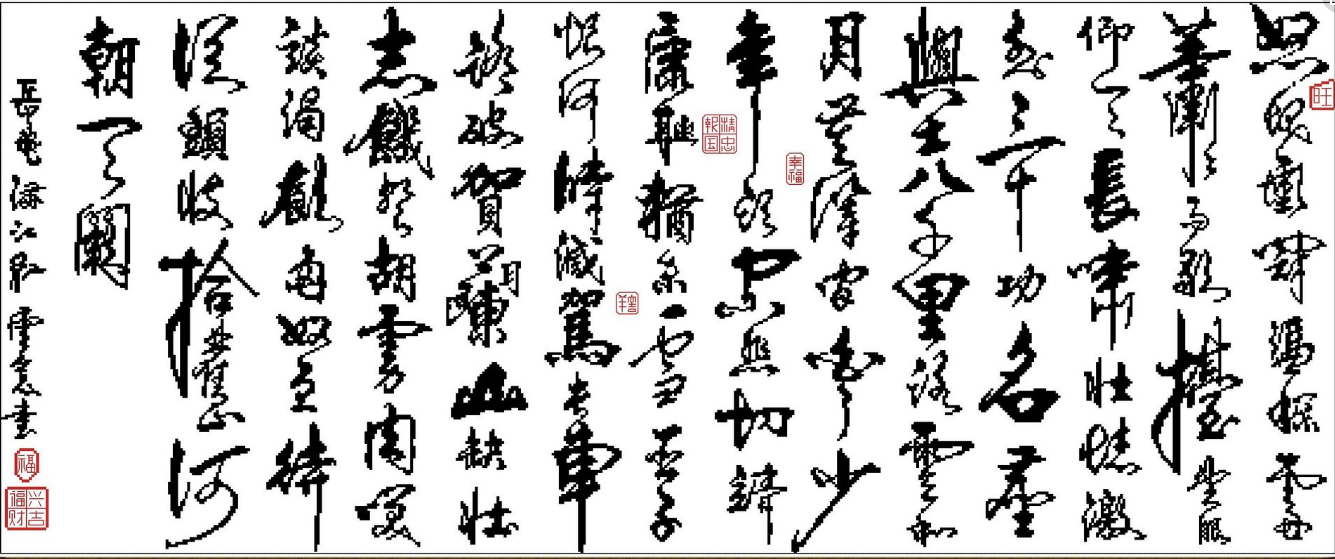 怒髮衝冠憑欄處
瀟瀟雨歇擡望眼
仰天長嘯壯懷激
烈三十功名塵
與土八千里路雲和
月莫等閒白了少
年頭空悲切靖
康恥猶未雪臣子
恨何時滅駕長車
踏破賀蘭山缺壯
志飢餐胡虜肉笑
談渴飲匈奴血待
從頭收拾舊山河
朝天闕
岳飛 滿江紅 書
旺
精忠報国
幸福
福